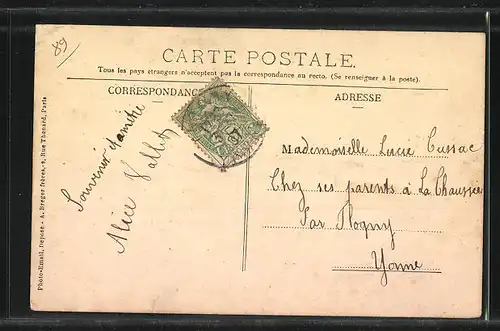 89
CARTE POSTALE.
Tous les pays étrangers n'acceptent pas la correspondance au recto. (Se renseigner à la poste).
CORRESPONDANCE
ADRESSE
Souvenir d'amitié
Alice Vallet
Mademoiselle Lucie Cussac
Chez ses parents à La Chaussée
Par Flogny
Yonne
Photo-Email, Dépose. - A. Breger frères, 9, Rue Thénard, Paris